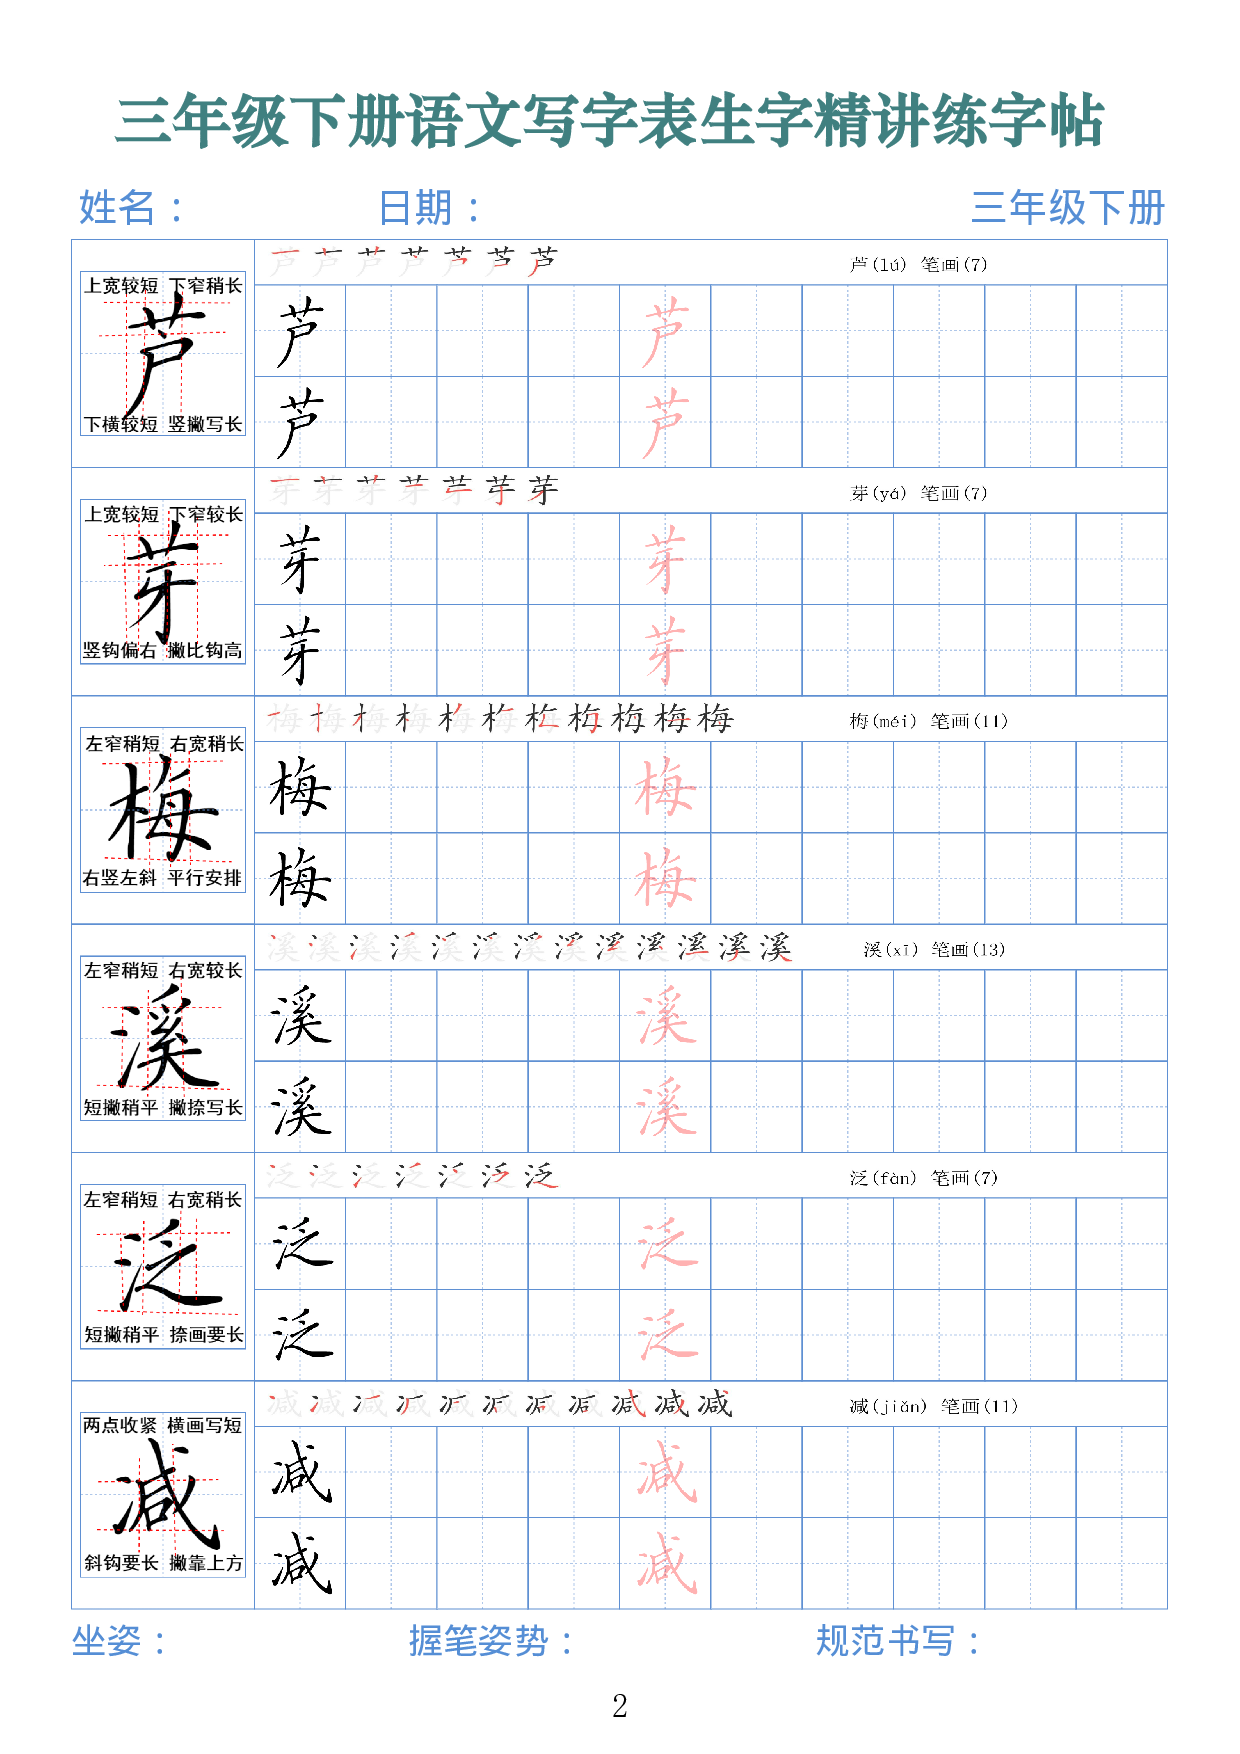 三年级下册语文写字表生字精讲练字帖
姓名： 日期： 三年级下册
芦 芦 芦 芦 芦 芦 芦 芦(lú) 笔画(7)
上宽较短 下窄稍长
芦
下横较短 竖撇写长
芦 芦
芦 芦
芽 芽 芽 芽 芽 芽 芽 芽(yá) 笔画(7)
上宽较短 下窄较长
芽
竖钩偏右 撇比钩高
芽 芽
芽 芽
梅 梅 梅 梅 梅 梅 梅 梅 梅 梅 梅 梅(méi) 笔画(11)
左窄稍短 右宽稍长
梅
右竖左斜 平行安排
梅 梅
梅 梅
溪 溪 溪 溪 溪 溪 溪 溪 溪 溪 溪 溪 溪 溪(xī) 笔画(13)
左窄稍短 右宽较长
溪
短撇稍平 撇捺写长
溪 溪
溪 溪
泛 泛 泛 泛 泛 泛 泛 泛(fàn) 笔画(7)
左窄稍短 右宽稍长
泛
短撇稍平 捺画要长
泛 泛
泛 泛
减 减 减 减 减 减 减 减 减 减 减 减(jiǎn) 笔画(11)
两点收紧 横画写短
减
斜钩要长 撇靠上方
减 减
减 减
坐姿： 握笔姿势： 规范书写：
2